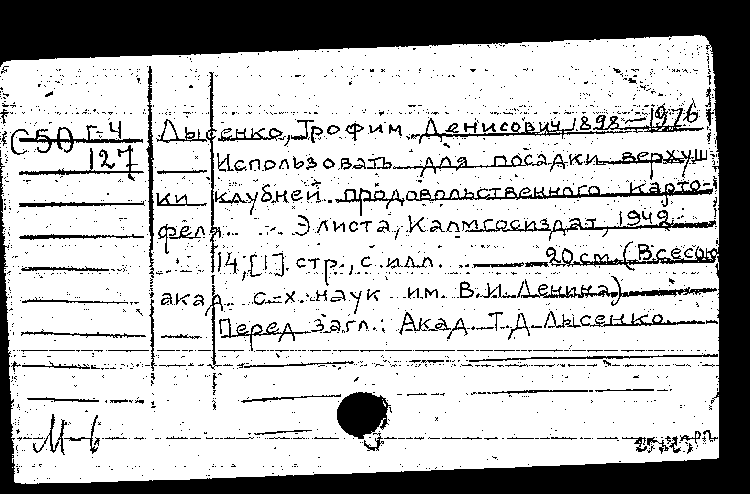 С50 г-4 Лысенко, Трофим Денисович, 1898-1976
127 Использовать для посадки верхуш
ки клубней продовольственного карто-
феля. Элиста, Калмгосиздат, 1942
14,[1] стр., с илл. 20 см. (Всесою
акад. с-х. наук им. В.И. Ленина)
Перед загл.: Акад. Т.Д. Лысенко.
М-6
РП